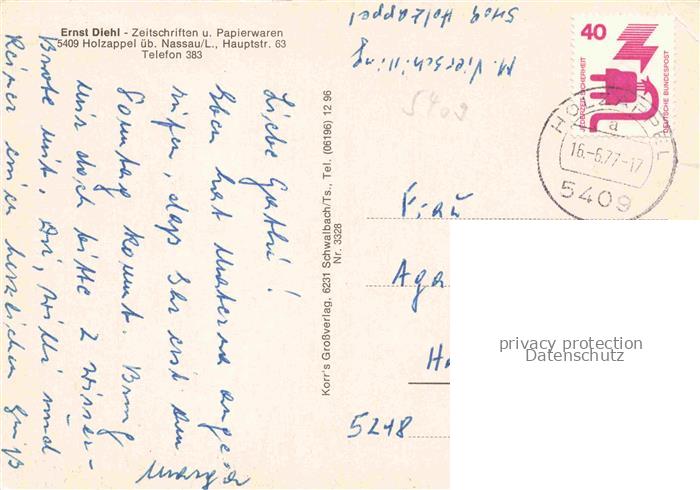 Ernst Diehl - Zeitschriften u. Papierwaren
5409 Holzappel üb. Nassau/L., Hauptstr. 63
Telefon 383
Liebe Gathi!
Eben hat Materna ange-
rufen, dass Ihr erst am
Sonntag kommt. Bring
mir doch bitte 2 Wisser-
Brote mit. Dir, Willi und
Reiner einen herzlichen Gruß
Marga
Korr's Großverlag, 6231 Schwalbach/Ts., Tel. (06196) 12 96
Nr. 3328
M. Vierschilling
5409 Holzappel
5409
40
JEDERZEIT SICHERHEIT
DEUTSCHE BUNDESPOST
HOLZAPPEL
a
16.-6.77-17
5409
Frau
Aga
5248
privacy protection
Datenschutz